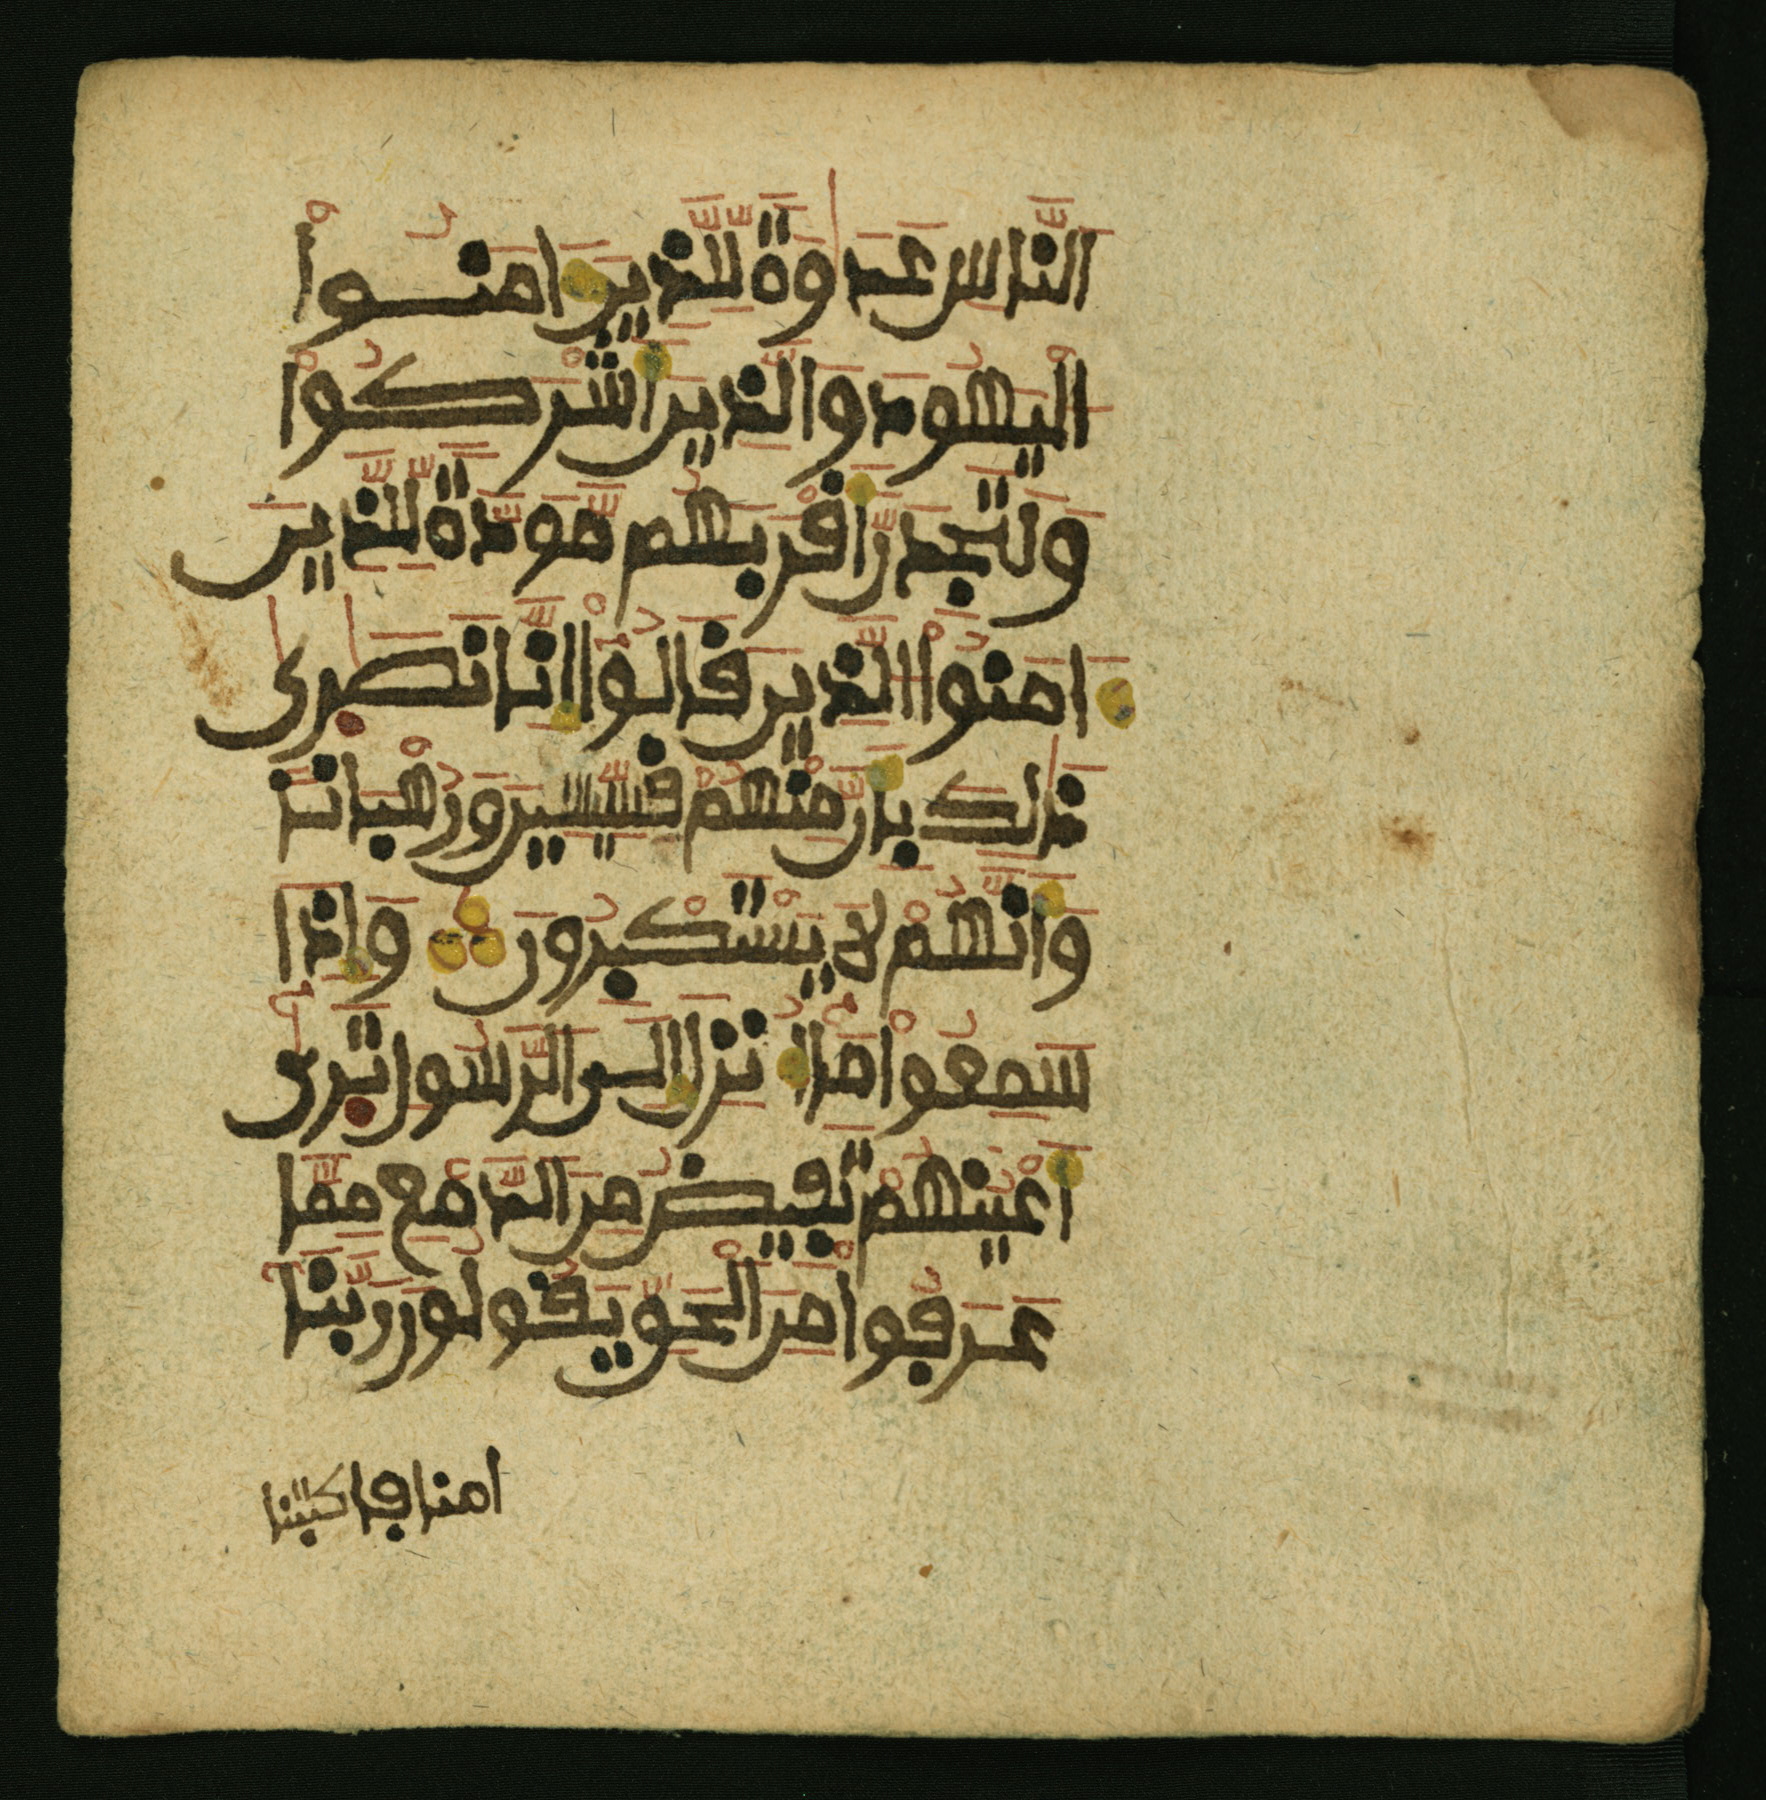 النَّاسِ عَدَٰوَةً لِّلَّذِينَ ءَامَنُواْ
الْيَهُودَ وَالَّذِينَ أَشْرَكُواْ
وَلَتَجِدَنَّ أَقْرَبَهُم مَّوَدَّةً لِّلَّذِينَ
ءَامَنُواْ الَّذِينَ قَالُواْ إِنَّا نَصَٰرَىٰ
ذَٰلِكَ بِأَنَّ مِنْهُمْ قِسِّيسِينَ وَرُهْبَانًا
وَأَنَّهُمْ لَا يَسْتَكْبِرُونَ وَإِذَا
سَمِعُواْ مَا أُنزِلَ إِلَى الرَّسُولِ تَرَىٰ
أَعْيُنَهُمْ تَفِيضُ مِنَ الدَّمْعِ مِمَّا
عَرَفُواْ مِنَ الْحَقِّ يَقُولُونَ رَبَّنَا
امنا فا كتبنا